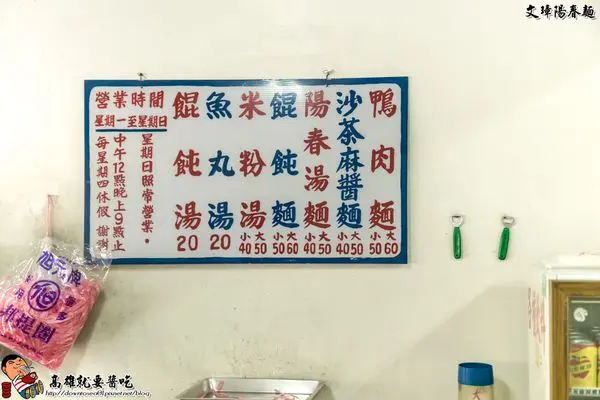 文瑋陽春麵
鴨肉麵 小50 大60
沙茶麻醬麵 小40 大50
陽春湯麵 小40 大50
餛飩麵 小50 大60
米粉湯 小40 大50
魚丸湯 20
餛飩湯 20
營業時間
星期一至星期日
星期日照常營業。
中午12點晚上9點止
每星期四休假 謝謝
高雄就要醬吃